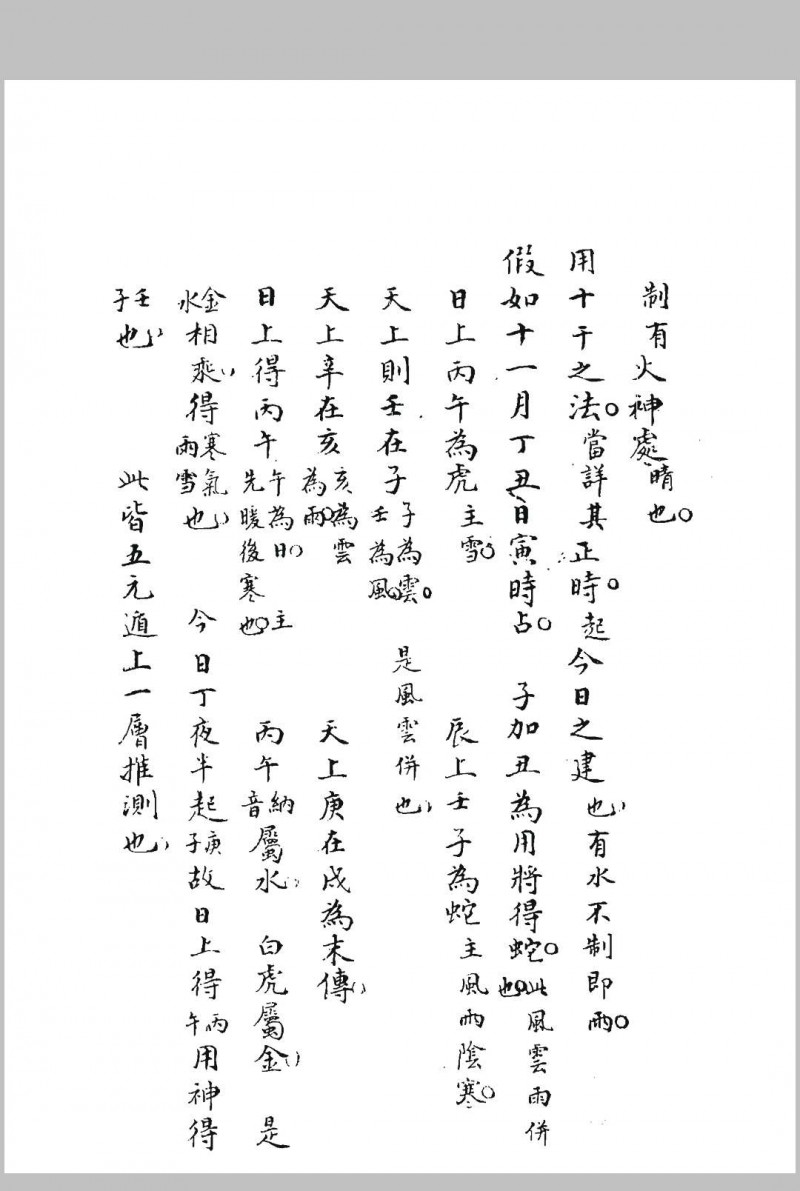 制有火神處晴也。
用十干之法。當詳其正時。起今日之建也有水不制即雨。
假如十一月丁丑日寅時占。子加丑為用將得蛇。此風雲雨併也。
日上丙午為虎主雪。辰上壬子為蛇主風雨陰寒。
天上則壬在子子為雲。壬為風。是風雲併也
天上辛在亥亥為雲為雨天上庚在戌為末傳
日上得丙午午為日。主先暖後寒也丙午納音屬水白虎屬金是
金水相乘得寒氣雨雪也今日丁夜半起庚子故日上得丙午用神得
壬子也此皆五元遁上一層推測也